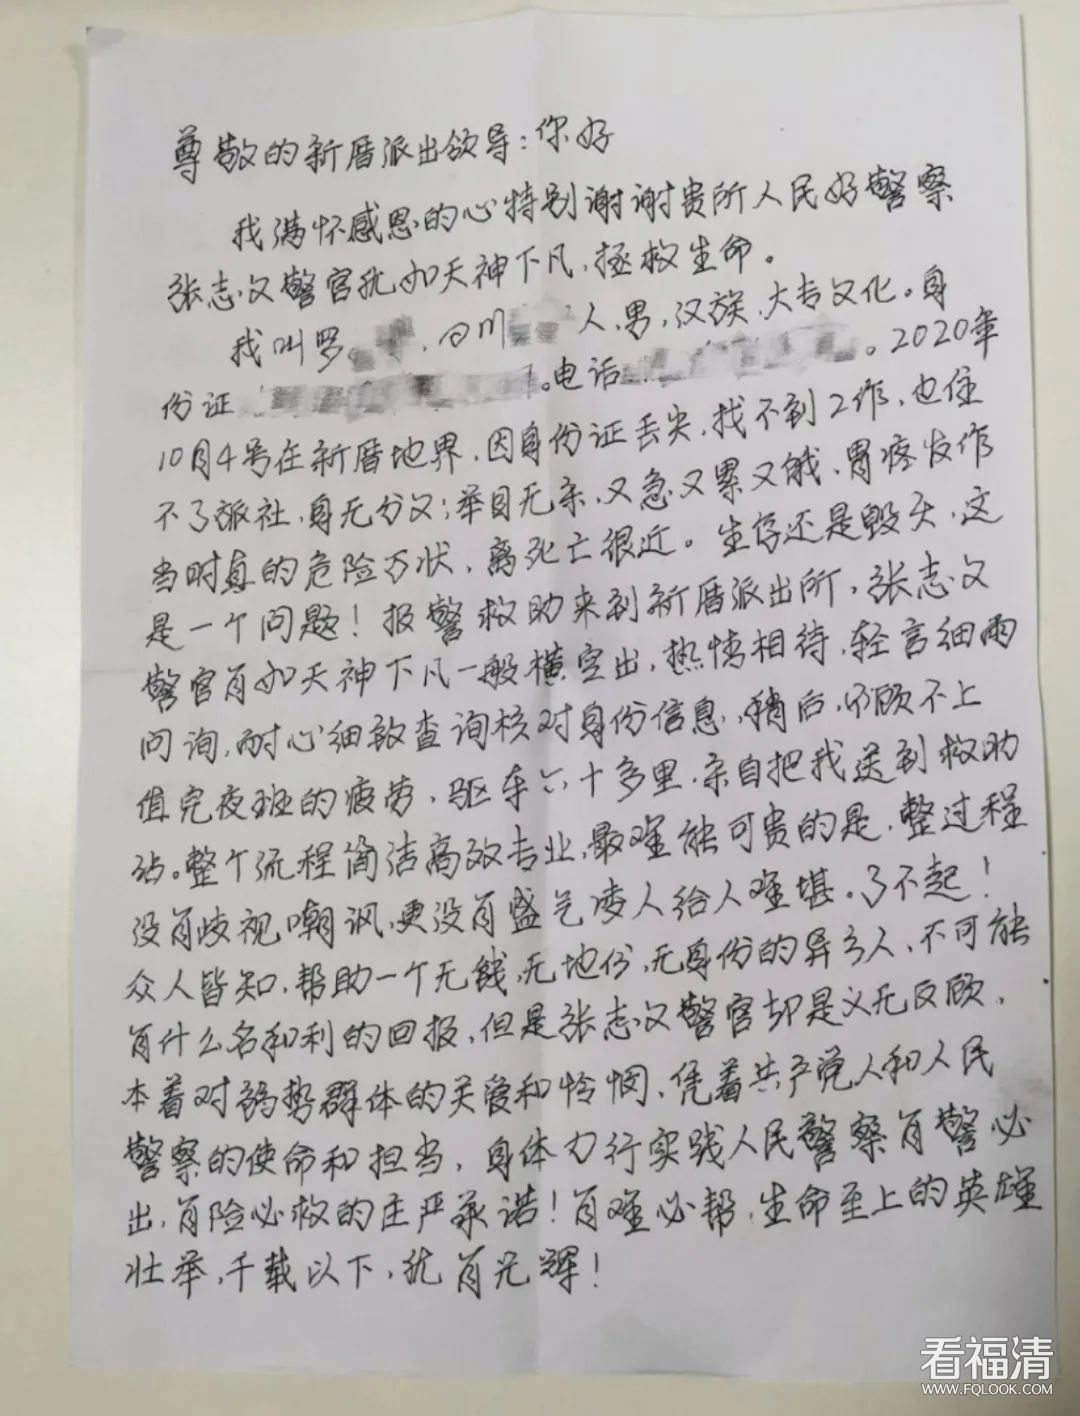 尊敬的新厝派出领导：你好
我满怀感恩的心特别谢谢贵所人民好警察
张志文警官犹如天神下凡，拯救生命。
我叫罗 ，四川 人，男，汉族，大专文化。身
份证 。电话 。2020年
10月4号在新厝地界，因身份证丢失，找不到工作，也住
不了旅社，身无分文；举目无亲，又急又累又饿，胃疼发作
当时真的危险万状，离死亡很近。生存还是毁灭，这
是一个问题！报警救助来到新厝派出所，张志文
警官有如天神下凡一般横空出，热情相待，轻言细雨
问询，耐心细致查询核对身份信息，稍后，不顾不上
值完夜班的疲劳，驱车六十多里，亲自把我送到救助
站。整个流程简洁高效专业，最难能可贵的是，整过程
没有歧视嘲讽，更没有盛气凌人给人难堪。了不起！
众人皆知，帮助一个无钱，无地位，无身份的异乡人，不可能
有什么名和利的回报，但是张志文警官却是义无反顾，
本着对弱势群体的关爱和怜悯，凭着共产党人和人民
警察的使命和担当，身体力行实践人民警察有警必
出，有险必救的庄严承诺！有难必帮，生命至上的英雄
壮举，千载以下，犹有光辉！
看福清
WWW.FQLOOK.COM